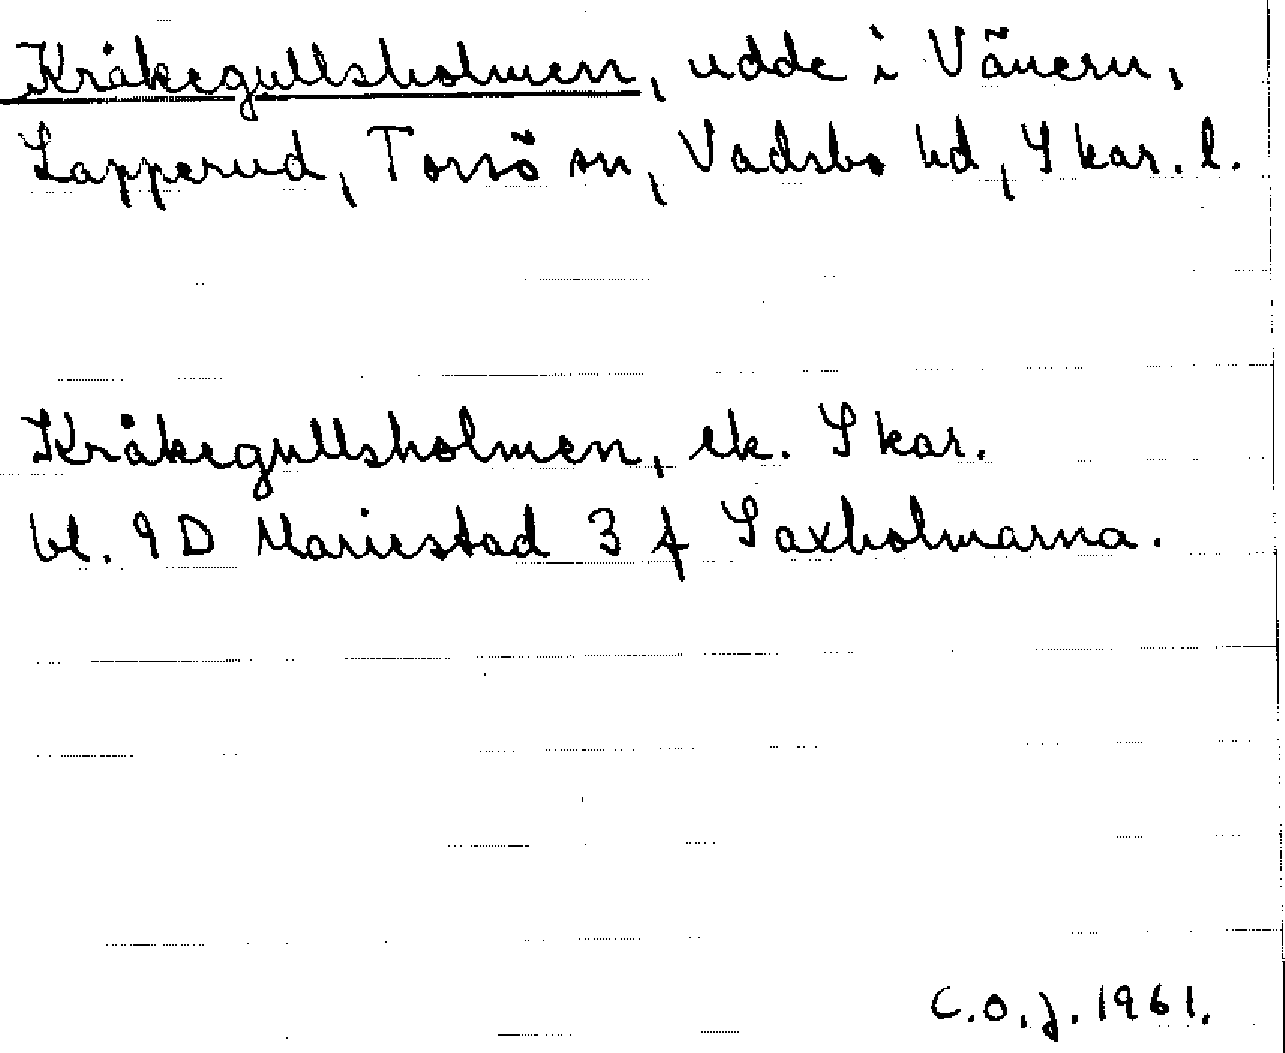 Kråkegullsholmen, udde i Vänern,
Lapperud, Torsö sn, Vadsbo hd, Skar. l.
Kråkegullsholmen, ek. Skar.
bl. 9D Mariestad 3 f Saxholmarna.
C.O.J. 1961.